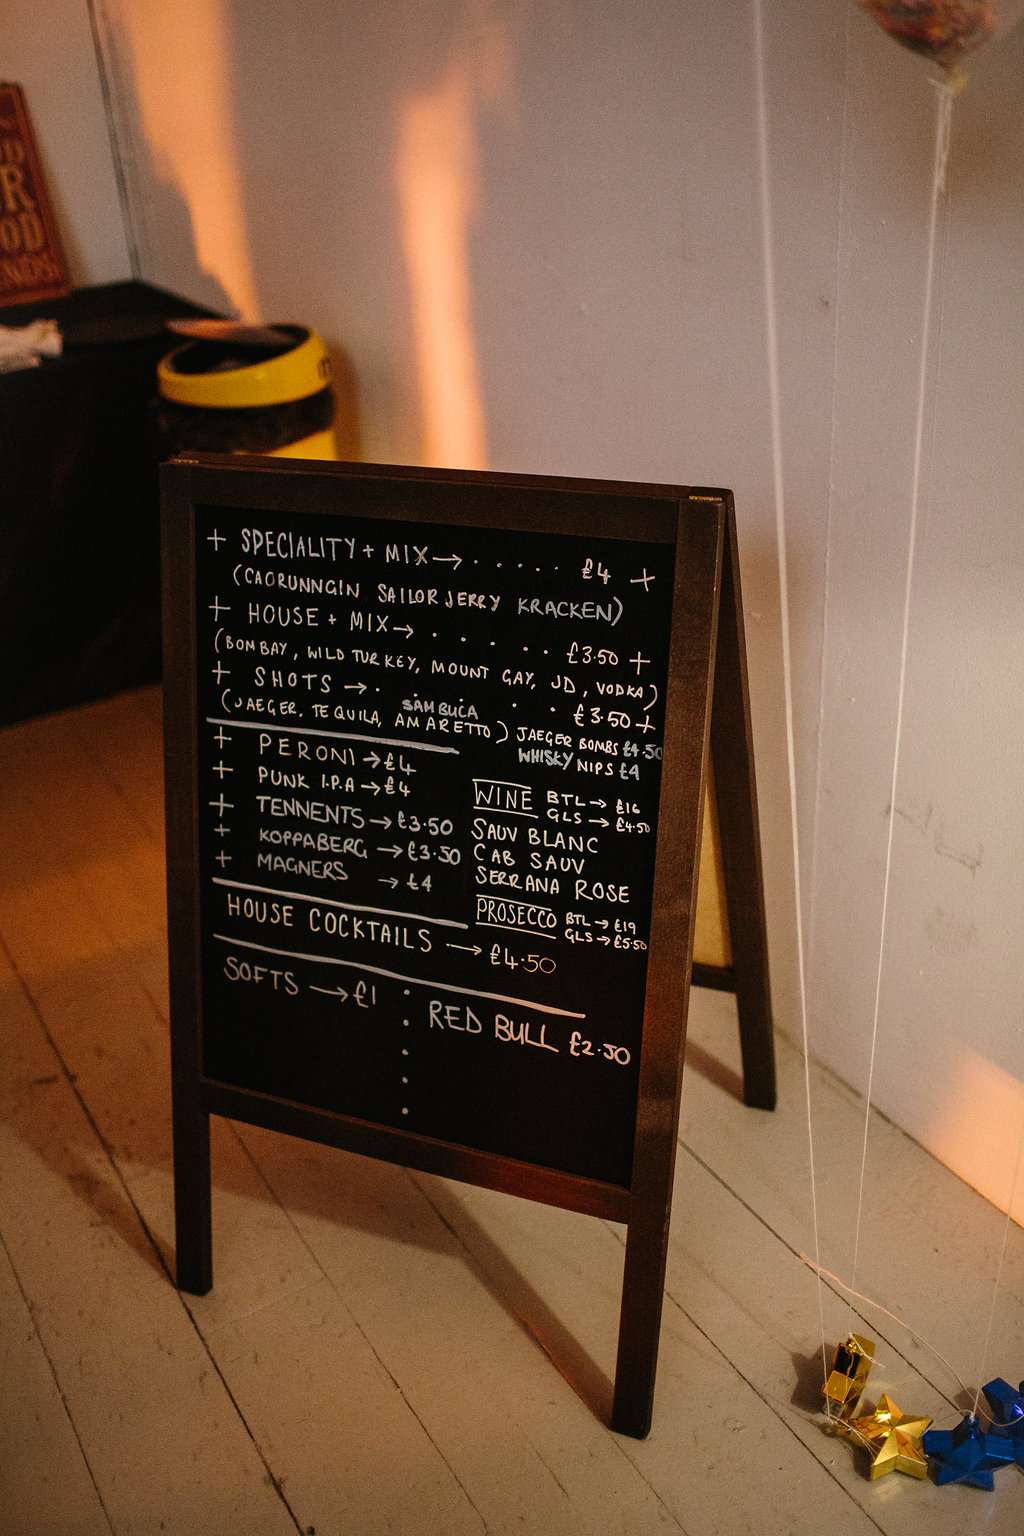 + SPECIALITY + MIX → . . . . . £4 +
(CAORUNNGIN SAILOR JERRY KRACKEN)
+ HOUSE + MIX → . . . . . £3.50 +
(BOMBAY, WILD TURKEY, MOUNT GAY, JD, VODKA)
+ SHOTS → . . . . £3.50 +
SAMBUCA
(JAEGER, TEQUILA, AMARETTO)
JAEGER BOMBS £4.50
WHISKY NIPS £4
+ PERONI → £4
+ PUNK I.P.A → £4
+ TENNENTS → £3.50
+ KOPPABERG → £3.50
+ MAGNERS → £4
WINE BTL → £16
GLS → £4.50
SAUV BLANC
CAB SAUV
SERRANA ROSE
PROSECCO BTL → £19
GLS → £5.50
HOUSE COCKTAILS → £4.50
SOFTS → £1
RED BULL £2.50